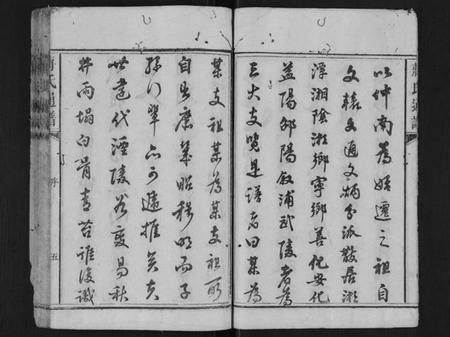 以仲南為始遷之祖自
文轅文通文炳分派散居湘
潭湘陰湘鄉寧鄉善化安化
益陽邵陽敘浦武陵者為
三大支覽是譜者曰某為
某支祖某為某支祖所
自出麇集昭穆明而子
孫行輩亦可遞推矣夫
世遠代湮陵谷變易秋
井雨塌白骨青苔誰復識
氏通譜
序
五